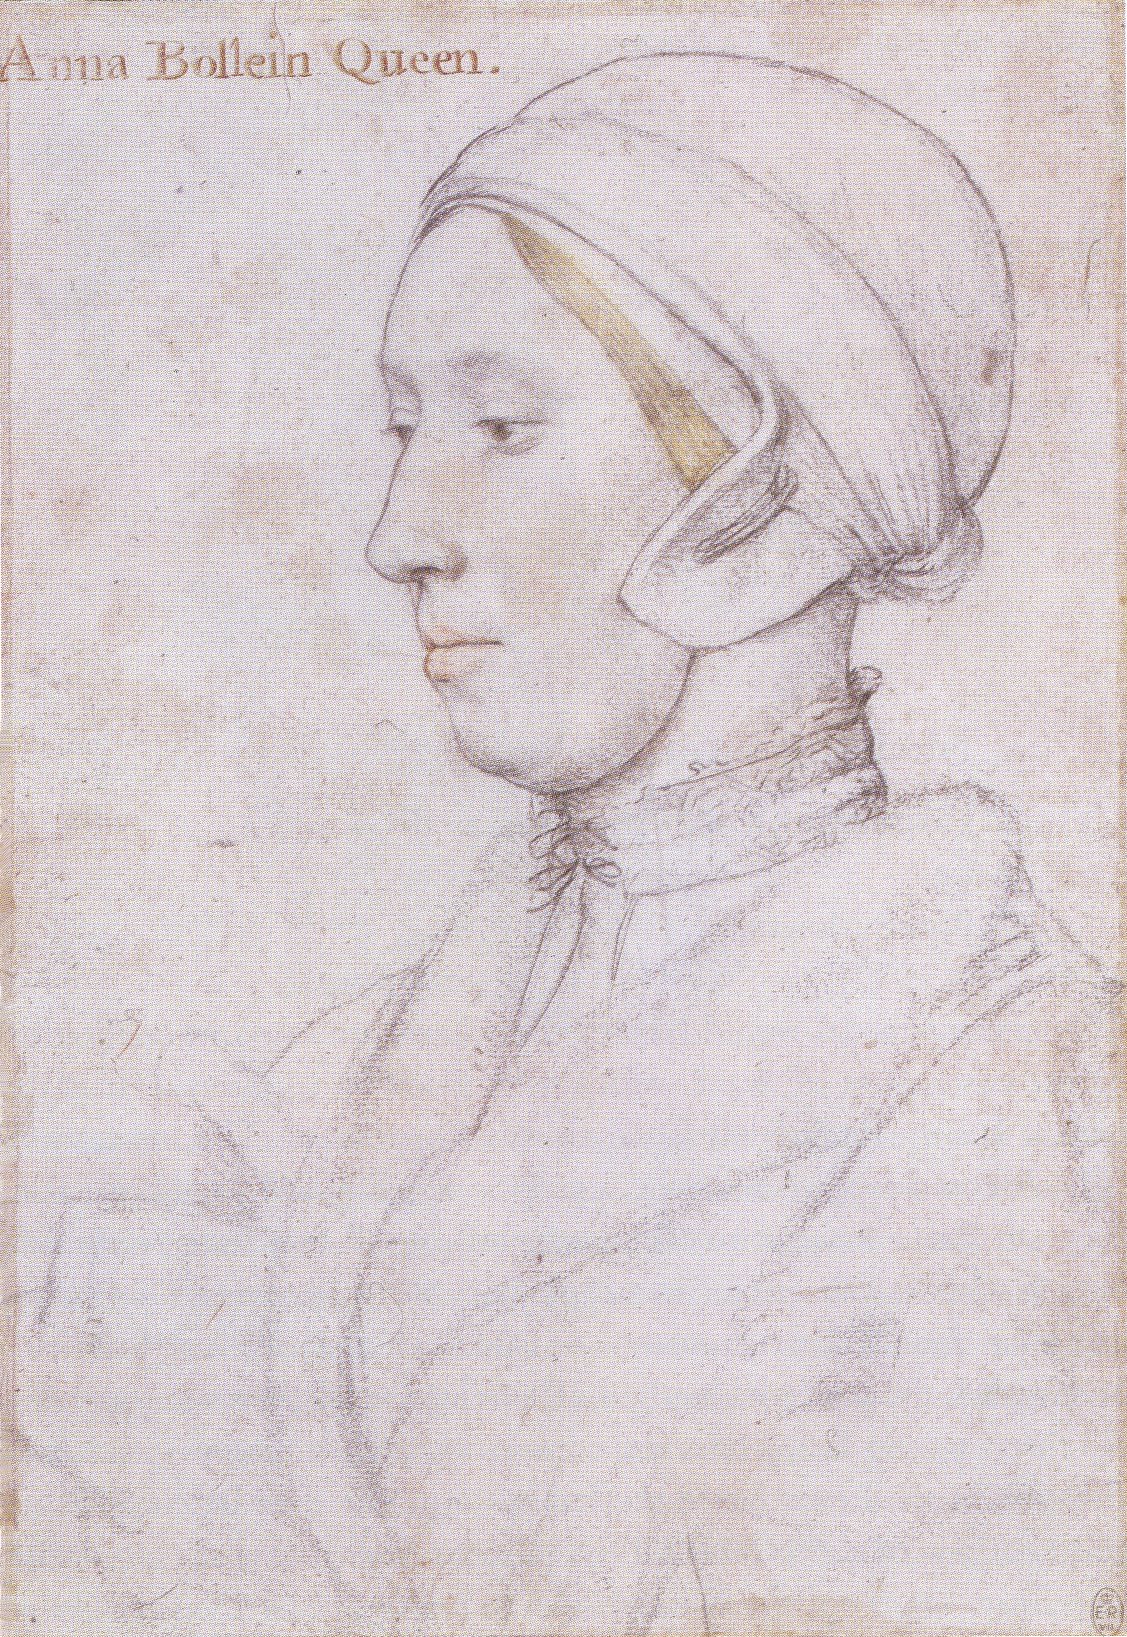 Anna Bollein Queen.
ER
VII